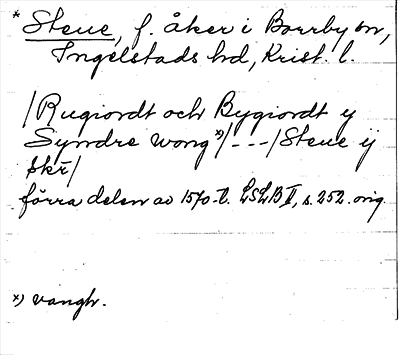 * Steue, f. åker i Borrby sn,
Ingelstads hd, Krist. l.
/Rugiordt och Bygiordt y
Syndre wong *)/---/Steue ij
skr̄/
förra delen av 1570-t. LSLB II, s. 252. orig.
*) vångh.